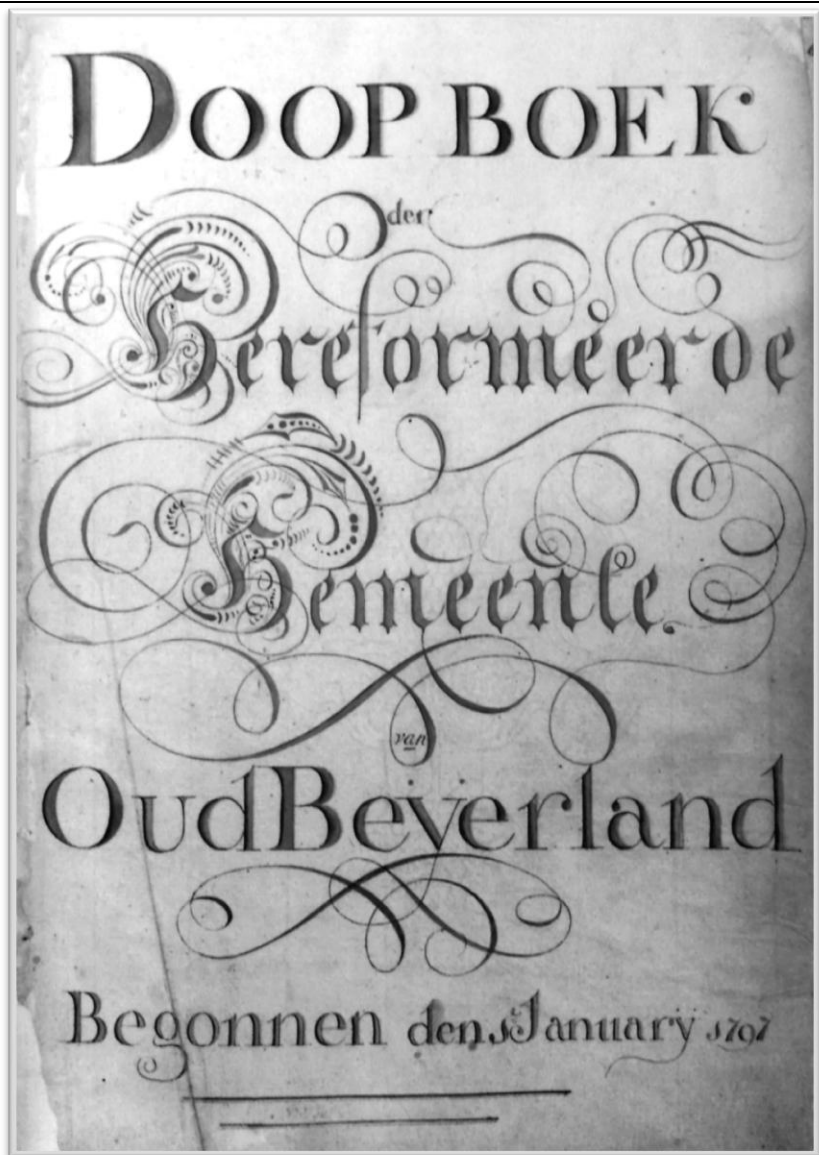 DOOP BOEK
der
Gereformeerde
Gemeente.
van
Oud Beyerland
Begonnen den 1e January 1797